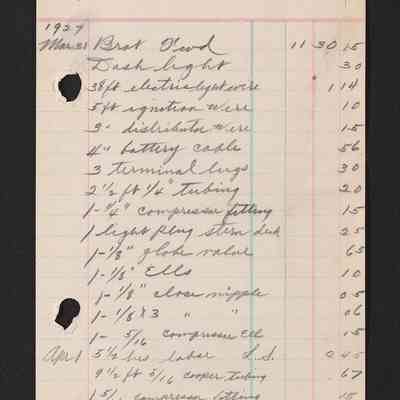 1927
Mar 31 Brot Fwd 11 30 15
Dash light 30
38 ft electric light wire 1 14
5 ft ignition wire 10
3" distributor wire 15
4" battery cable 56
3 terminal lugs 30
2 1/2 ft 1/4" tubing 20
1- 1/4" compressor fitting 15
1 light plug stern deck 25
1- 1/8" globe valve 65
1- 1/8" Ells 10
1- 1/8" close nipple 05
1- 1/8 X 3 " " 06
1- 5/16 compressor Ell 15
Apr 1 5 1/2 hrs labor L.S. 45
9 1/2 ft 5/16 cooper tubing .67
1 5/ compressor fitting 15